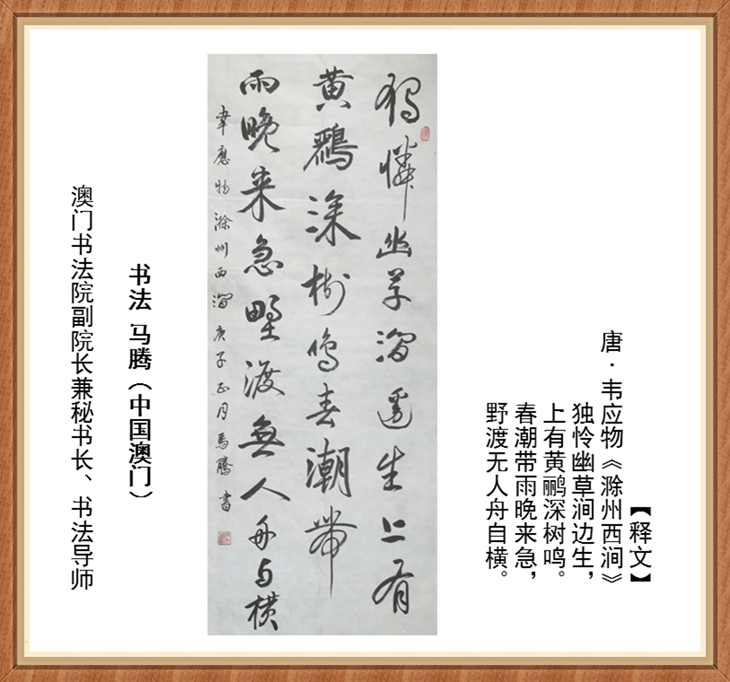 【释文】
唐·韦应物《滁州西涧》
独怜幽草涧边生，
上有黄鹂深树鸣。
春潮带雨晚来急，
野渡无人舟自横。
獨憐幽草澗邊生上有
黄鸝深樹鳴春潮帶
雨晚来急野渡無人舟自横
韋應物滁州西澗庚子正月馬騰書
书法 马腾（中国澳门）
澳门书法院副院长兼秘书长、书法导师